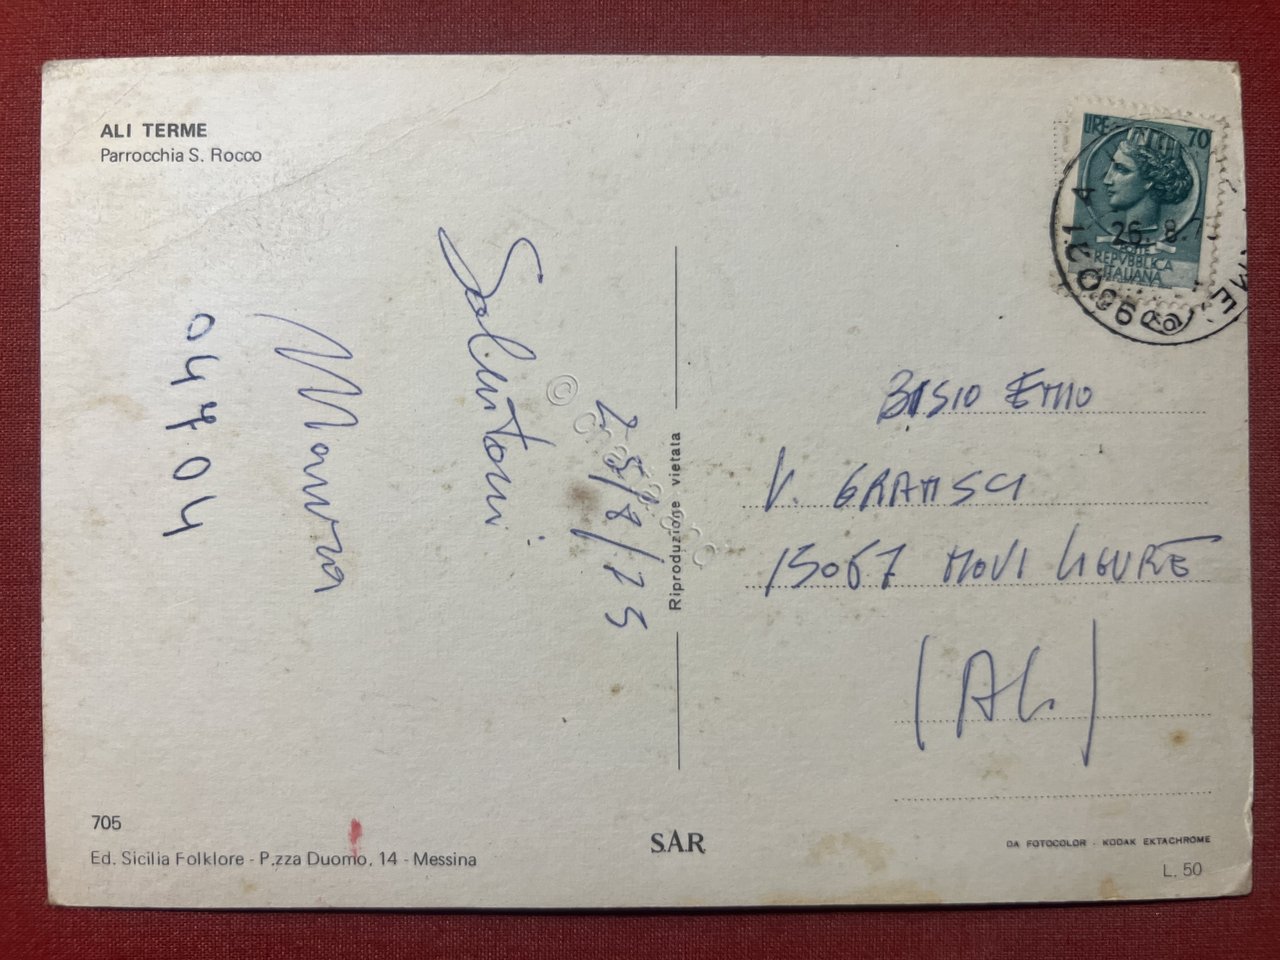 ALI TERME
Parrocchia S. Rocco
LIRE 70
POSTE
REPVBBLICA
ITALIANA
26. 8. 7
25/8/75
Salutoni
047704
BISIO EMIO
V. GRAMSCI
15067 NOVI LIGURE
(AL)
Riproduzione vietata
705
Ed. Sicilia Folklore - P.zza Duomo, 14 - Messina
SAR
DA FOTOCOLOR - KODAK EKTACHROME
L. 50